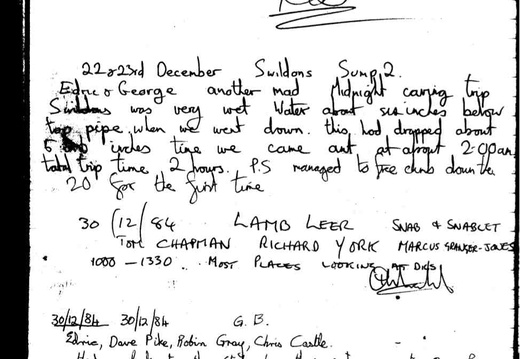 22 & 23rd December Swildons Sump 2.
Edric & George another mad Midnight caving trip
Swildons was very wet Water about six inches below
top pipe when we went down. this had dropped about
6 inches time we came out at about 2.00am
total trip time 2 hours. P.S managed to free climb down the
20 for the first time
30/12/84 LAMB LEER SNAB & SNABLET
TOM CHAPMAN RICHARD YORK MARCUS GRANGER-JONES
1000 - 1330. MOST PLACES LOOKING AT DIGS
30/12/84 30/12/84 G.B.
Edric, Dave Pike, Robin Gray, Chris Castle.